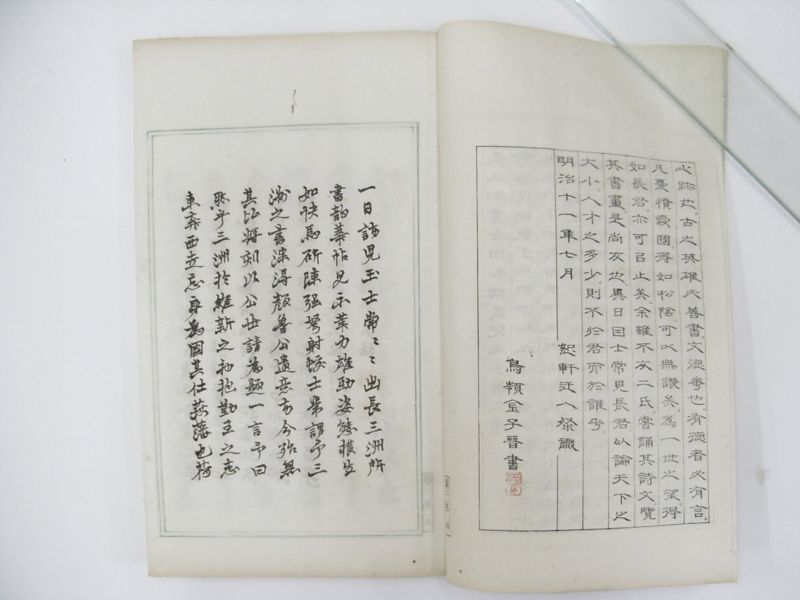 心跡也古之英雄必善書文德也有德者必有言
國得如松陽可以無譏矣為一世之望得
如長君亦可止矣余雖不友二氏嘗誦其詩文覽
其書畫是尚友也異日因士常見長君以論天下之
大小人才之多少則不於君而於誰乎
明治十一年七月 恕軒迂人粲識
金子晉書
一日訪兒玉士常〻〻出長三洲所
書韵華帖見示筆力雄勁姿態橫生
如快馬斫陳强弩射蛟士常謂予三
洲之書深得顏魯公遺意方今殆無
其比將刻以公世請為題一言予曰
然乎三洲於維新之初抱勤王之志
東奔西走忘身為國其仕萩藩也荷